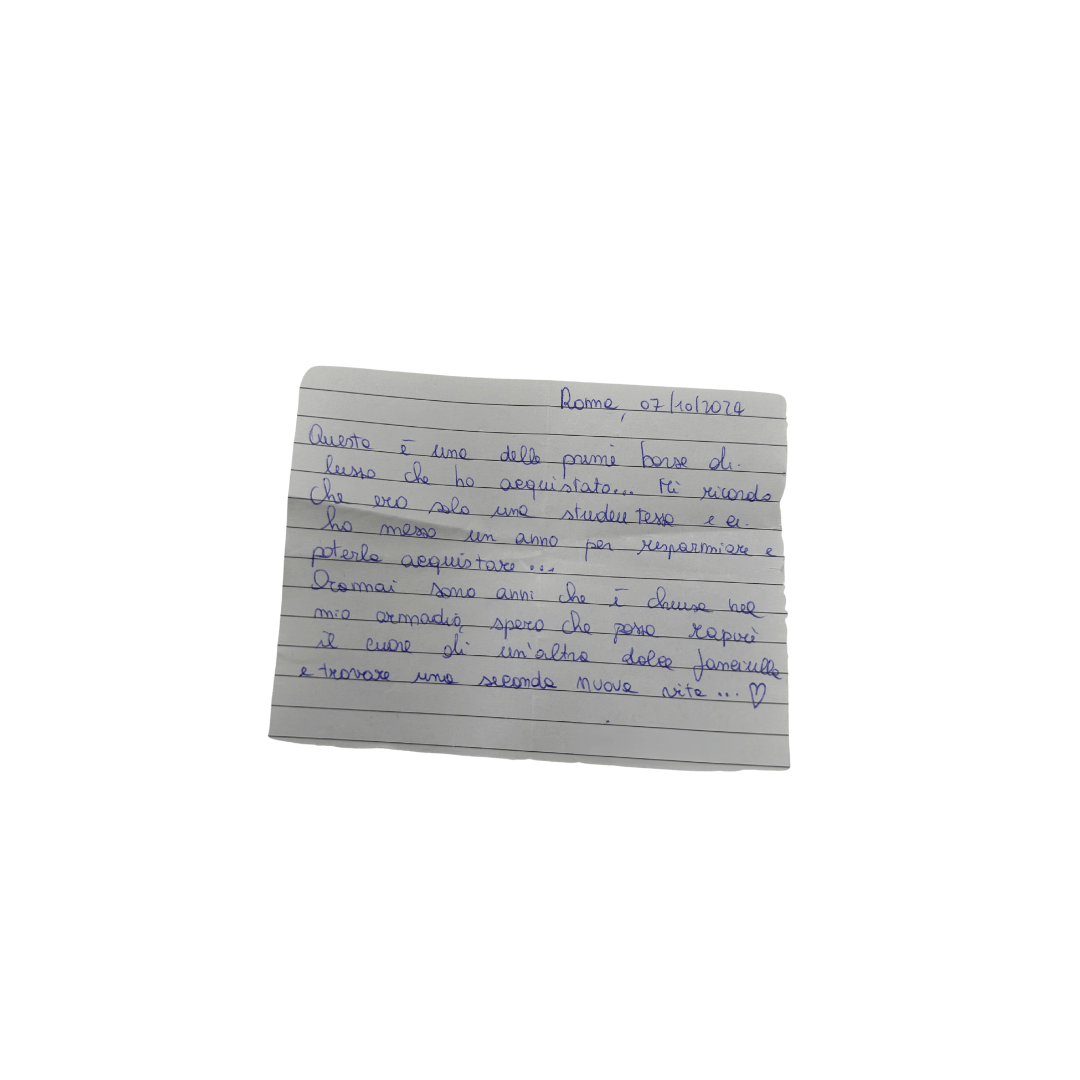 Roma, 07/10/2024
Questa è una delle prime borse di
lusso che ho acquistato... Mi ricordo
che ero solo una studentessa e ci
ho messo un anno per risparmiare e
poterla acquistare...
Oramai sono anni che è chiusa nel
mio armadio, spero che possa rapire
il cuore di un'altra dolce fanciulla
e trovare una seconda nuova vita... ♡